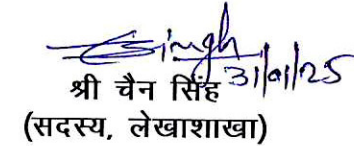 Singh
31/01/25
श्री चैन सिंह
(सदस्य, लेखाशाखा)